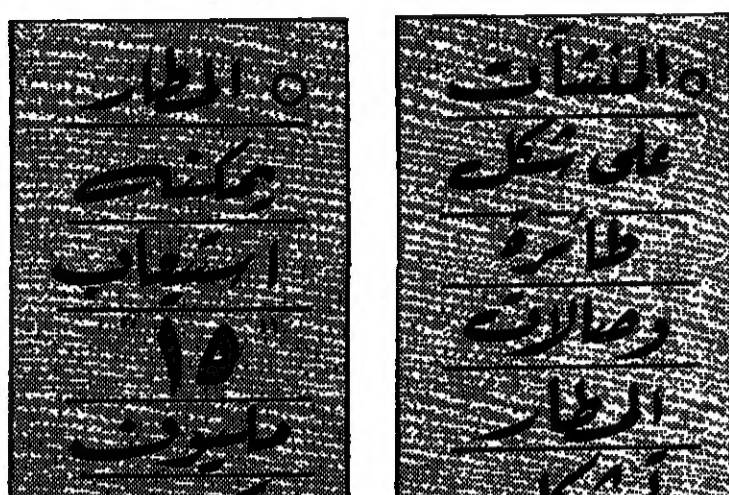 المنشآت
على شكل
طائرة
وصالات
المطار
المطار
يمكنه
استيعاب
"١٥"
مليون